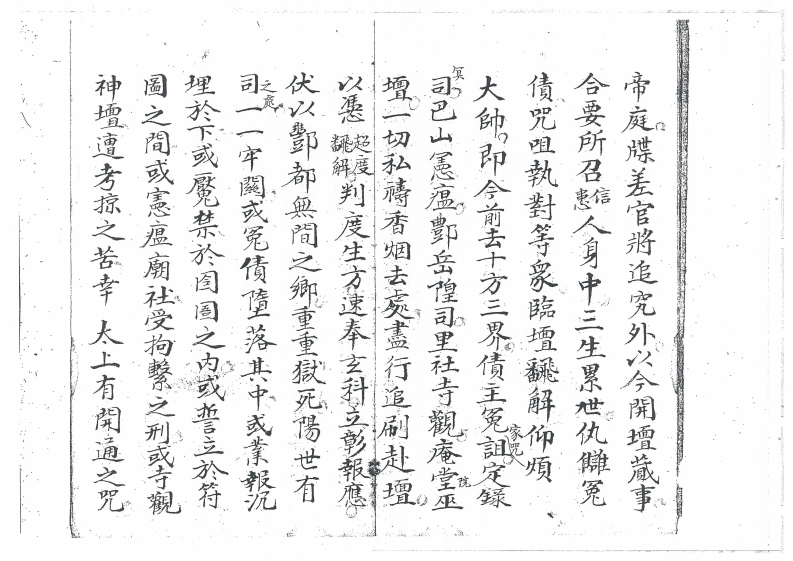 帝庭牒差官將追究外以今開壇蕆事
合要所召信患人身中三生累世仇讎冤
債咒咀執對等衆臨壇飜解仰煩
大帥即今前去十方三界債主冤家咒詛定錄
冥司巴山憲瘟酆岳隍司里社寺觀庵堂院巫
壇一切私禱香烟去處盡行追刷赴壇
以憑超度飜解判度生方速奉玄科立彰報應
伏以酆都無間之鄉重重獄死陽世有
司之處一一牢關或冤債墮落其中或業報沉
埋於下或魘禁於囹圄之内或誓立於符
圖之間或憲瘟廟社受拘繫之刑或寺觀
神壇遭考掠之苦幸 太上有開通之咒